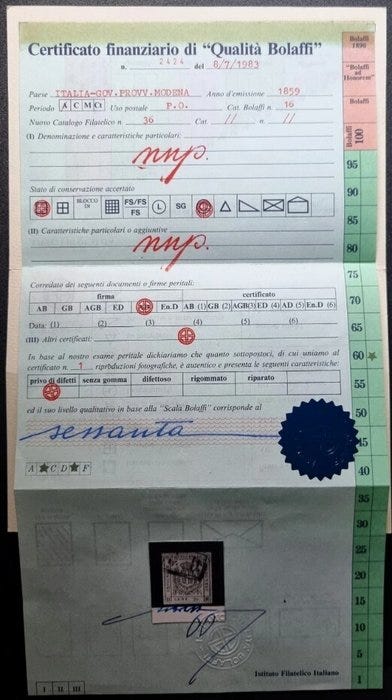 Certificato finanziario di “Qualità Bolaffi”
n. 2424 del 8/7/1983
Bolaffi 1890
"Bolaffi ad Honorem"
Bolaffi
Bolaffi 100
Paese ITALIA-GOV.PROVV.MODENA Anno d'emissione 1859
Periodo A C M Ct Uso postale P.O. Cat. Bolaffi n. 16
Nuovo Catalogo Filatelico n. 36 Cat. // n. //
(I) Denominazione e caratteristiche particolari:
nnp.
95
Stato di conservazione accertato
90
BLOCCO DI FS/FS FS L SG
85
(II) Caratteristiche particolari o aggiuntive
nnp.
80
75
Corredato dei seguenti documenti o firme peritali:
firma certificato
70
AB GB AGB ED En.D AB (1) GB (2) AGB(3) ED (4) AD (5) En.D (6)
Data: (1) (2) (3) (4) (5) (6)
65
(III) Altri certificati:
In base al nostro esame peritale dichiariamo che quanto sottopostoci, di cui uniamo al
60
certificato n. 1 riproduzioni fotografiche, è autentico e presenta le seguenti caratteristiche:
privo di difetti senza gomma difettoso rigommato riparato
55
ed il suo livello qualitativo in base alla "Scala Bolaffi" corrisponde al
50
sessanta
45
A C D F
40
35
30
25
20
15
10
5
Istituto Filatelico Italiano
1
I II III